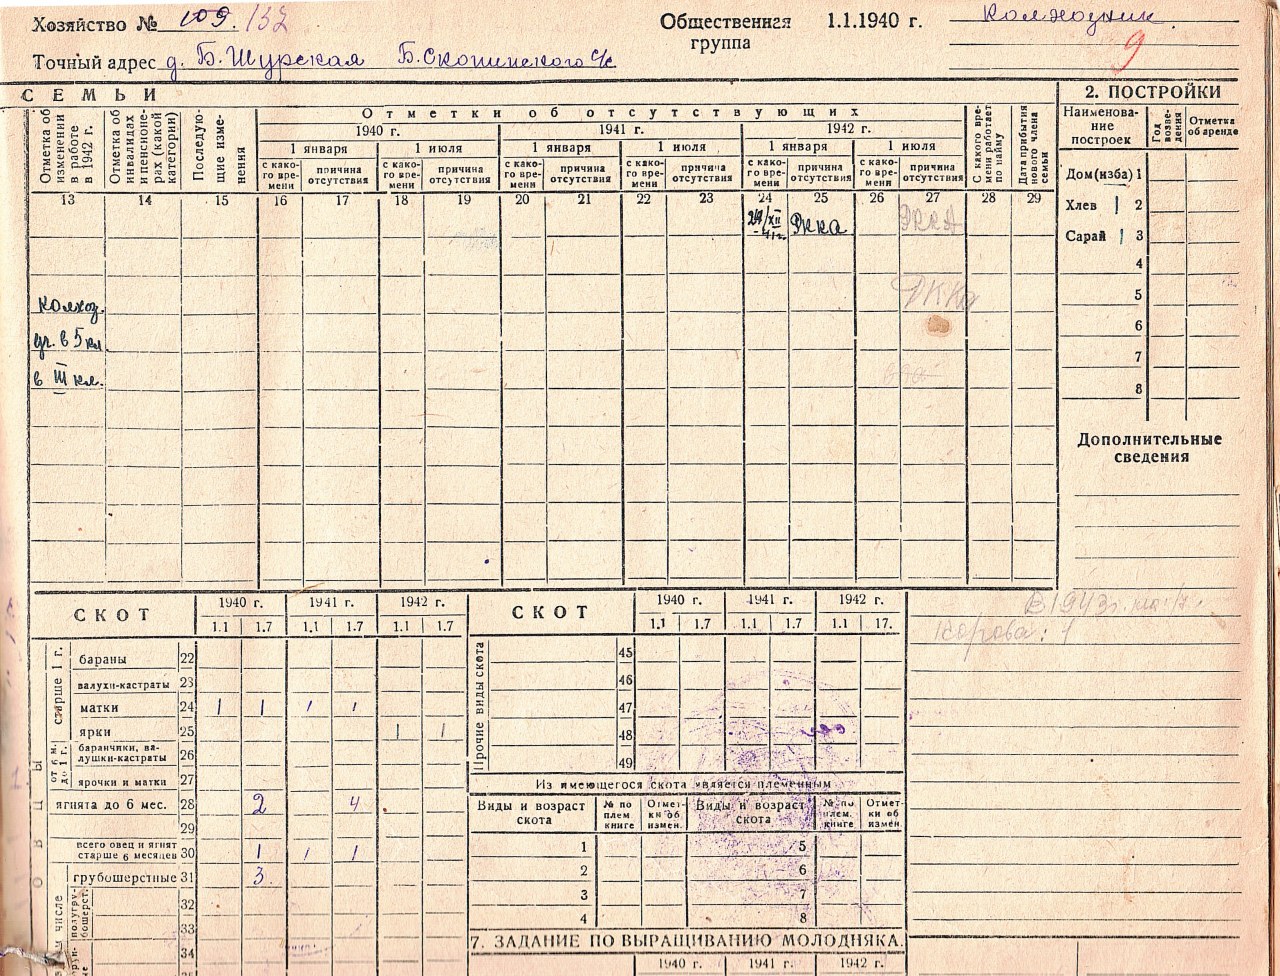 Хозяйство № 109. 132
Общественная группа 1.1.1940 г. Колхозник
9
Точный адрес д. Б. Шурская Б. Скопинского с/с
СЕМЬИ
Отметка об изменении в работе в 1942 г.
Отметка об инвалидах и пенсионерах (какой категории)
Последующие изменения
Отметки об отсутствующих
1940 г. 1941 г. 1942 г.
1 января 1 июля 1 января 1 июля 1 января 1 июля
с какого времени причина отсутствия с какого времени причина отсутствия с какого времени причина отсутствия с какого времени причина отсутствия с какого времени причина отсутствия с какого времени причина отсутствия
С какого времени работает по найму
Дата прибытия нового члена семьи
13 14 15 16 17 18 19 20 21 22 23 24 25 26 27 28 29
Ркка РККА
РККА
колхоз.
уч. в 5 кл.
в III кл.
2. ПОСТРОЙКИ
Наименование построек Год возведения Отметка об аренде
Дом (изба) 1
Хлев 1 2
Сарай 1 3
4
5
6
7
8
Дополнительные сведения
СКОТ 1940 г. 1941 г. 1942 г.
1.1 1.7 1.1 1.7 1.1 1.7
старше 1 г.
бараны 22
валухи-кастраты 23
матки 24 1 1 1 1
ярки 25 1 1
от 6 м. до 1 г.
баранчики, валушки-кастраты 26
ярочки и матки 27
ягнята до 6 мес. 28 2 4
29
всего овец и ягнят старше 6 месяцев 30 1 1 1
грубошерстные 31 3
полугрубошерст. 32
33
34
СКОТ 1940 г. 1941 г. 1942 г.
1.1 1.7 1.1 1.7 1.1 17.
Прочие виды скота
45
46
47
48
49
Из имеющегося скота является племенным
Виды и возраст скота № по плем. книге Отметки об измен. Виды и возраст скота № по плем. книге Отметки об измен.
1 5
2 6
3 7
4 8
7. ЗАДАНИЕ ПО ВЫРАЩИВАНИЮ МОЛОДНЯКА.
1940 г. 1941 г. 1942 г.
В 1943 г.
Корова: 1